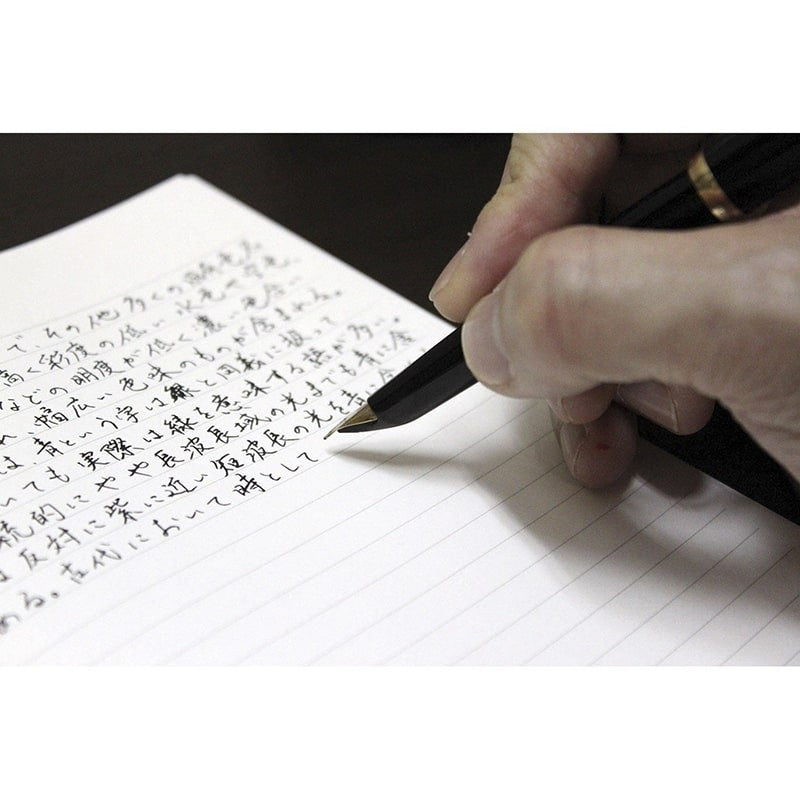 で、その他多くの
高く彩度の低い水色や空色
などの明度が低く濃い色合い
れ、幅広い色味のものが含まれる。
は、青という字は緑と同義に扱って
いても実際は緑を意味する語が多い。
統的にやや長波長域の光までも青に含
は反対に紫に近い短波長の光を青に
ある。古代において時として